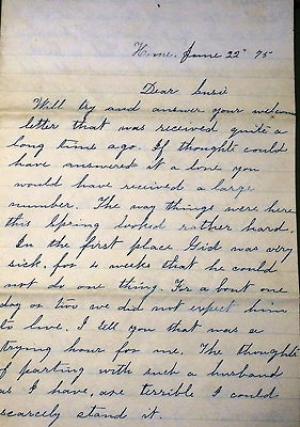 Home. June 22" 95
Dear Susie
Will try and answer your welcom
letter that was received quite a
long time ago. If thoughts could
have answered it alone you
would have received a large
number. The way things were here
this Spring looked rather hard.
In the first place Gid was very
sick. for 4 weeks that he could
not do one thing. For a bout one
day or two we did not expect him
to live. I tell you that was a
trying hour for me. The thoughts
of parting with such a husband
as I have, are terrible I could
scarcely stand it.